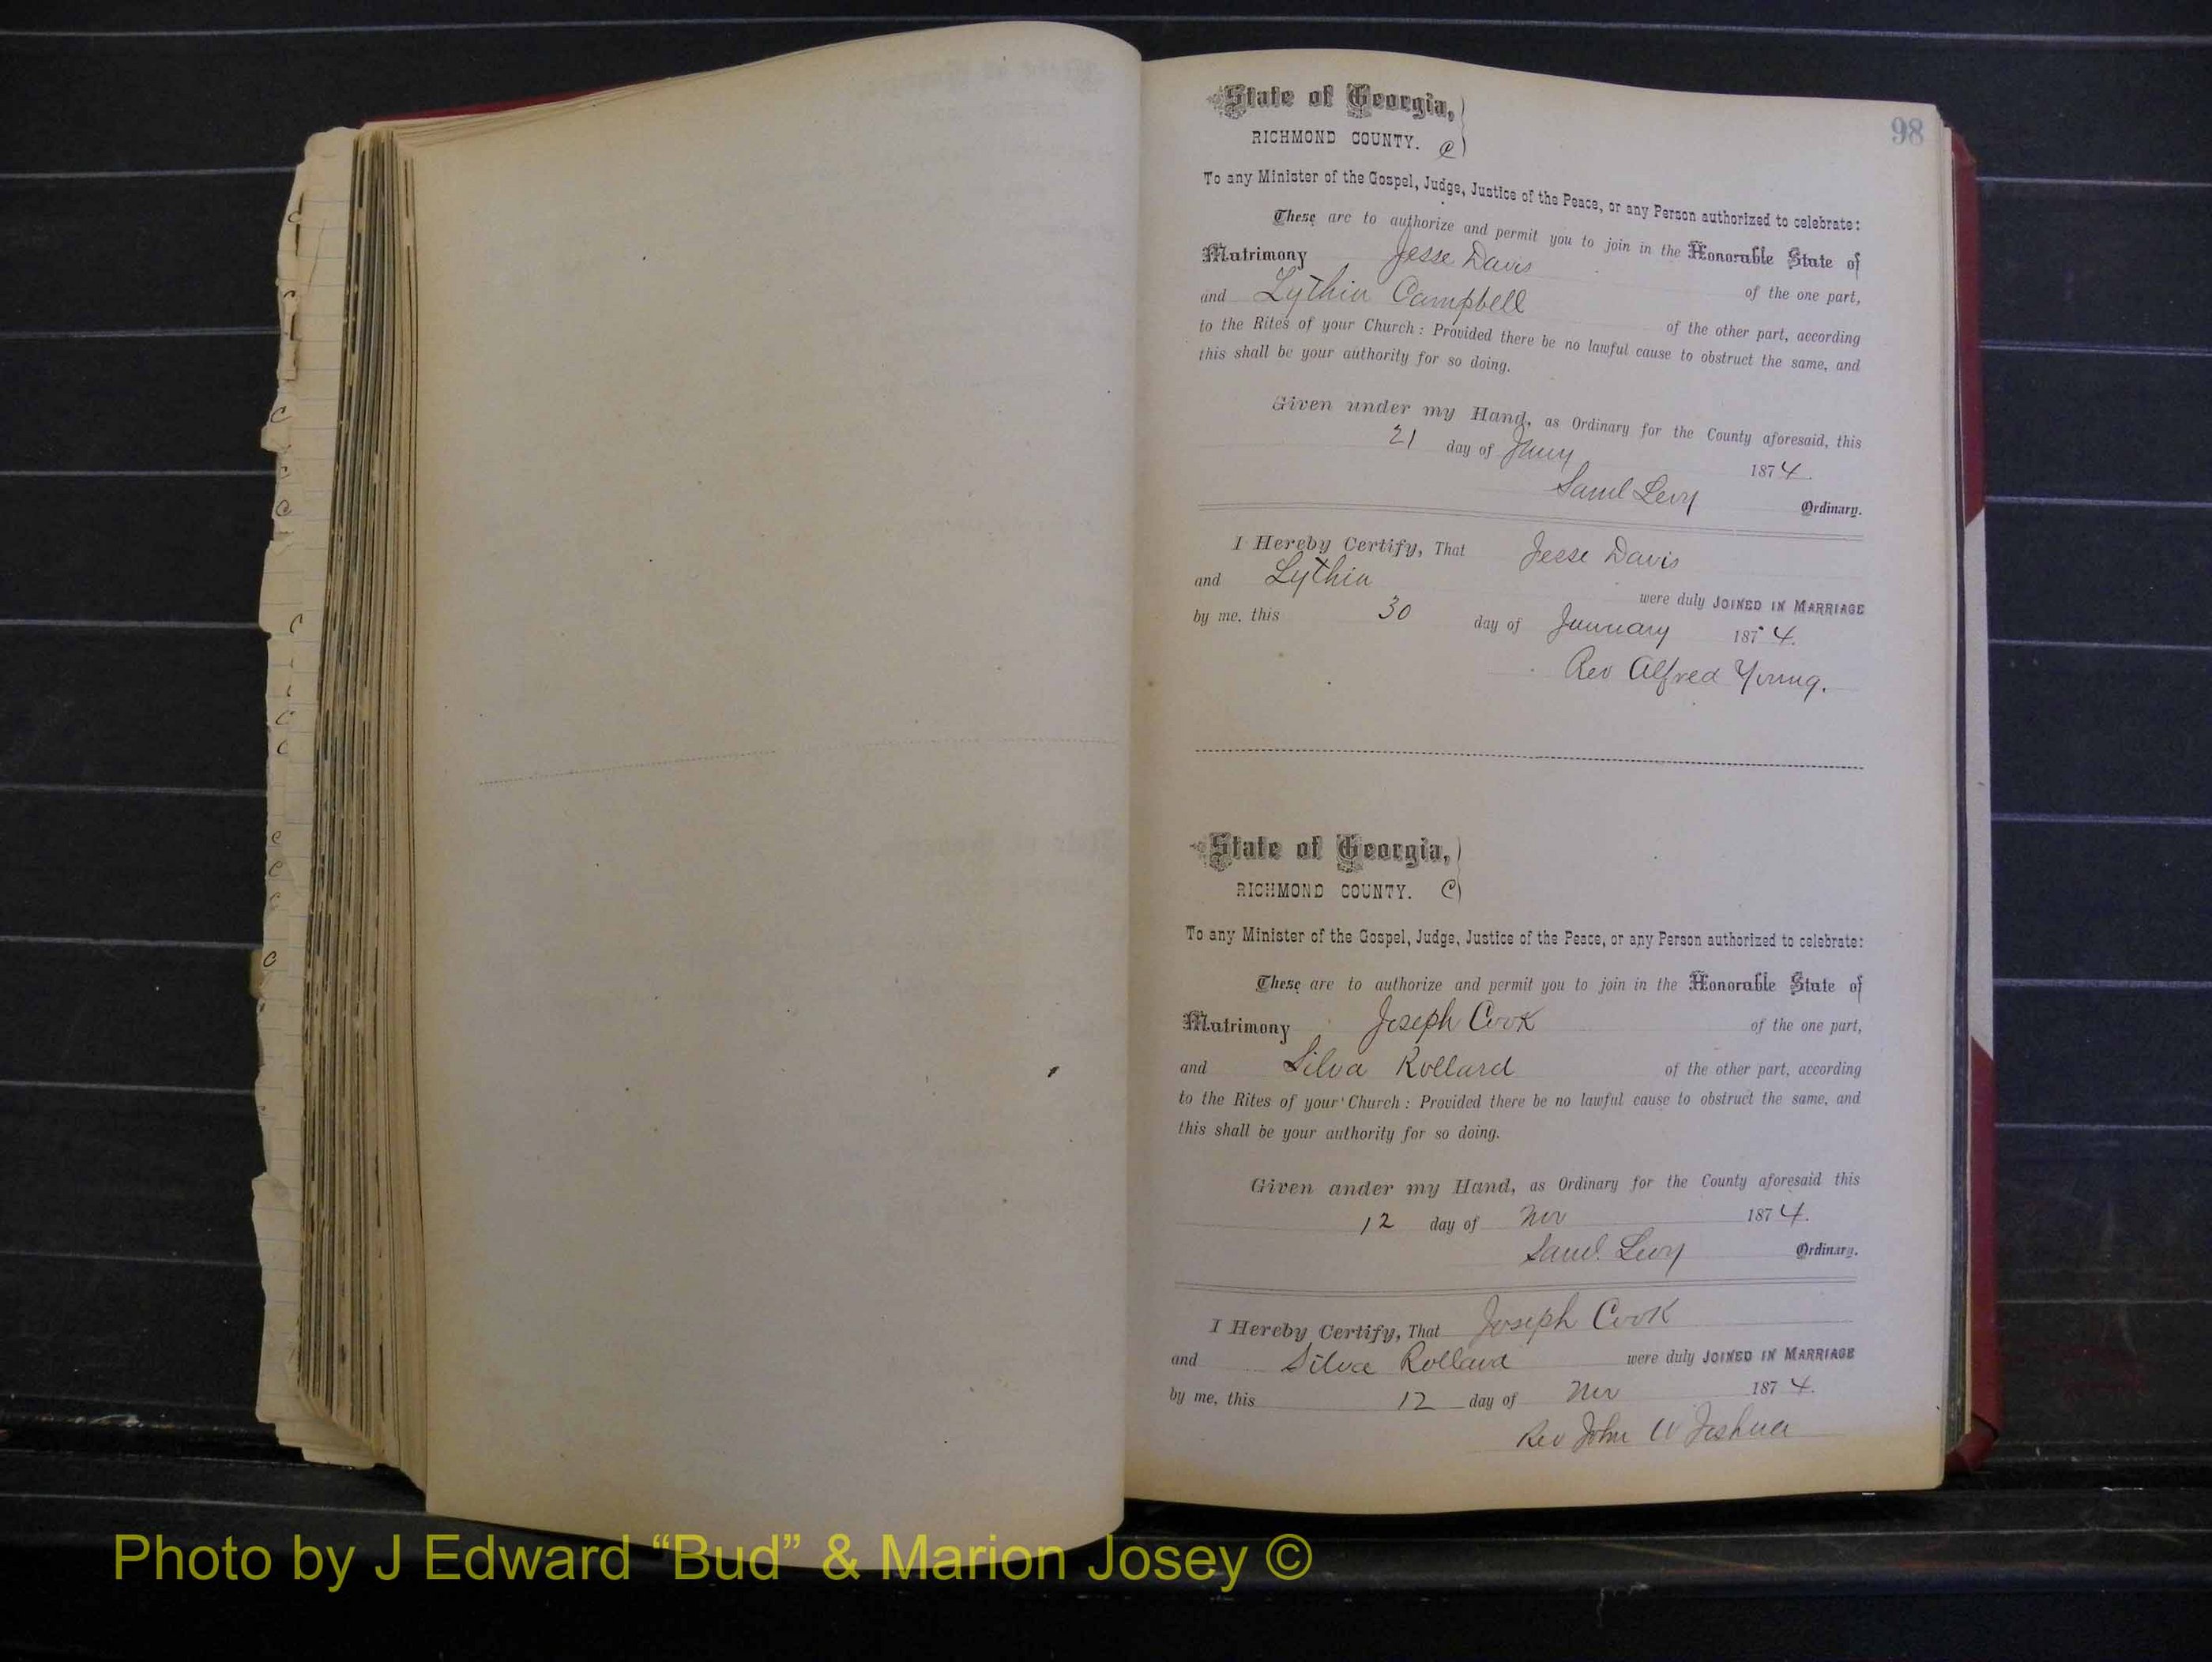 98
State of Georgia,
RICHMOND COUNTY. C
To any Minister of the Gospel, Judge, Justice of the Peace, or any Person authorized to celebrate:
These are to authorize and permit you to join in the Honorable State of
Matrimony Jesse Davis of the one part,
and Lythia Campbell of the other part, according
to the Rites of your Church: Provided there be no lawful cause to obstruct the same, and
this shall be your authority for so doing.
Given under my Hand, as Ordinary for the County aforesaid, this
21 day of Jany 1874.
Saml Levy Ordinary.
I Hereby Certify, That Jesse Davis
and Lythia were duly JOINED IN MARRIAGE
by me, this 30 day of January 1874.
Rev Alfred Young.
State of Georgia,
RICHMOND COUNTY. C
To any Minister of the Gospel, Judge, Justice of the Peace, or any Person authorized to celebrate:
These are to authorize and permit you to join in the Honorable State of
Matrimony Joseph Cook of the one part,
and Silva Rollard of the other part, according
to the Rites of your Church: Provided there be no lawful cause to obstruct the same, and
this shall be your authority for so doing.
Given under my Hand, as Ordinary for the County aforesaid this
12 day of Nov 1874.
Saml. Levy Ordinary.
I Hereby Certify, That Joseph Cook
and Silva Rollard were duly JOINED IN MARRIAGE
by me, this 12 day of Nov 1874.
Rev John W Joshua
Photo by J Edward “Bud” & Marion Josey ©